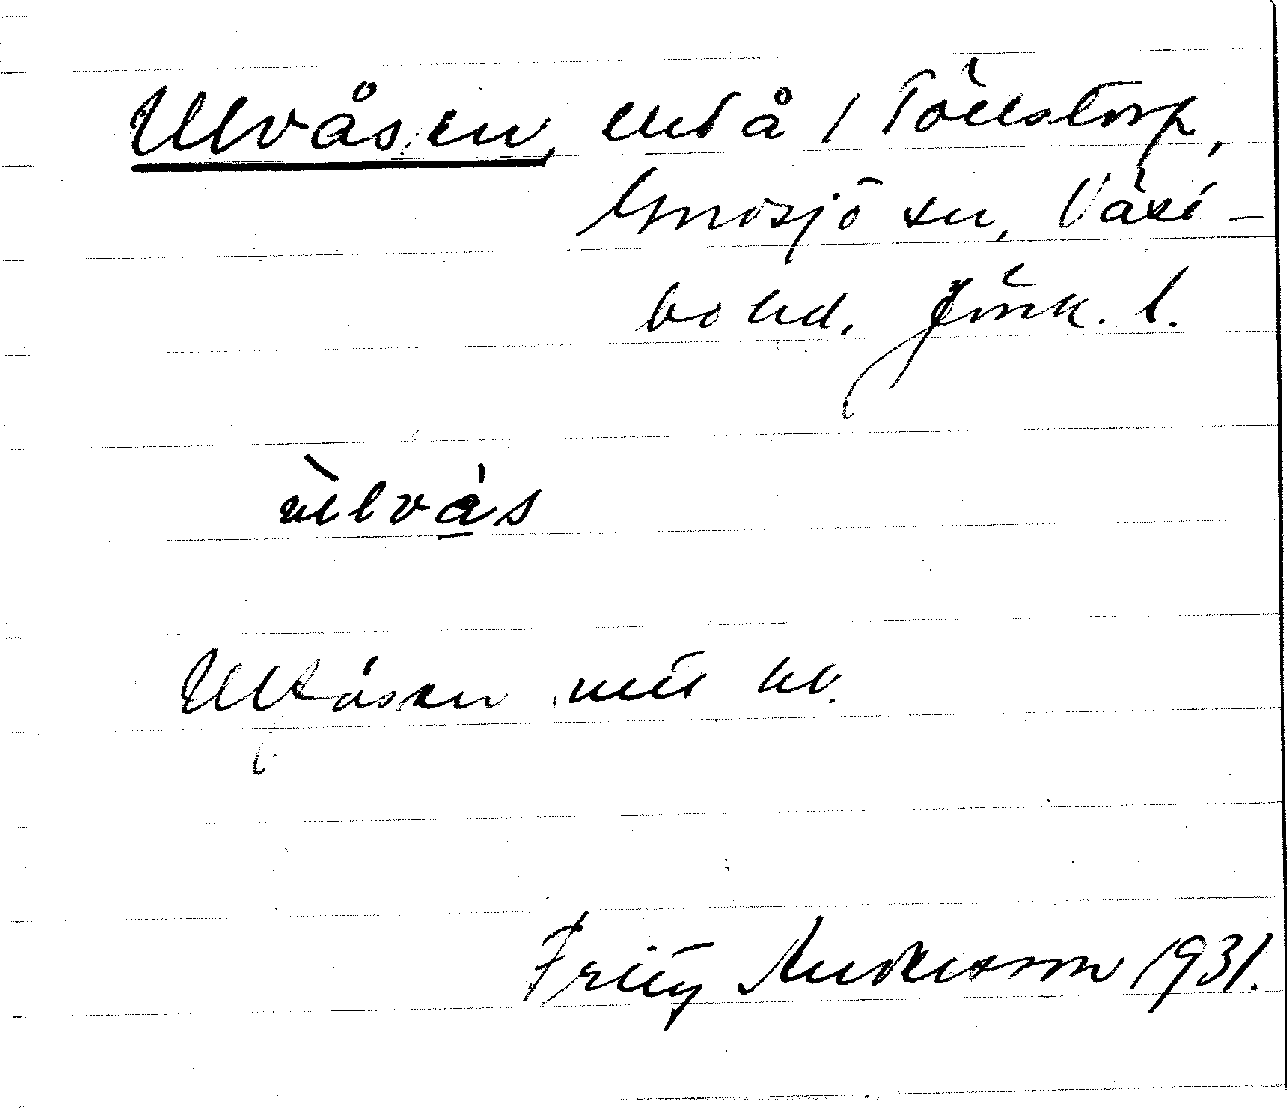 Ulvåsen, und å / Töllstorp,
Gnosjö sn, Väst-
bo hd. Jönk. l.
ùlvås
Ulvåsen
Fritz Andersson 1931.